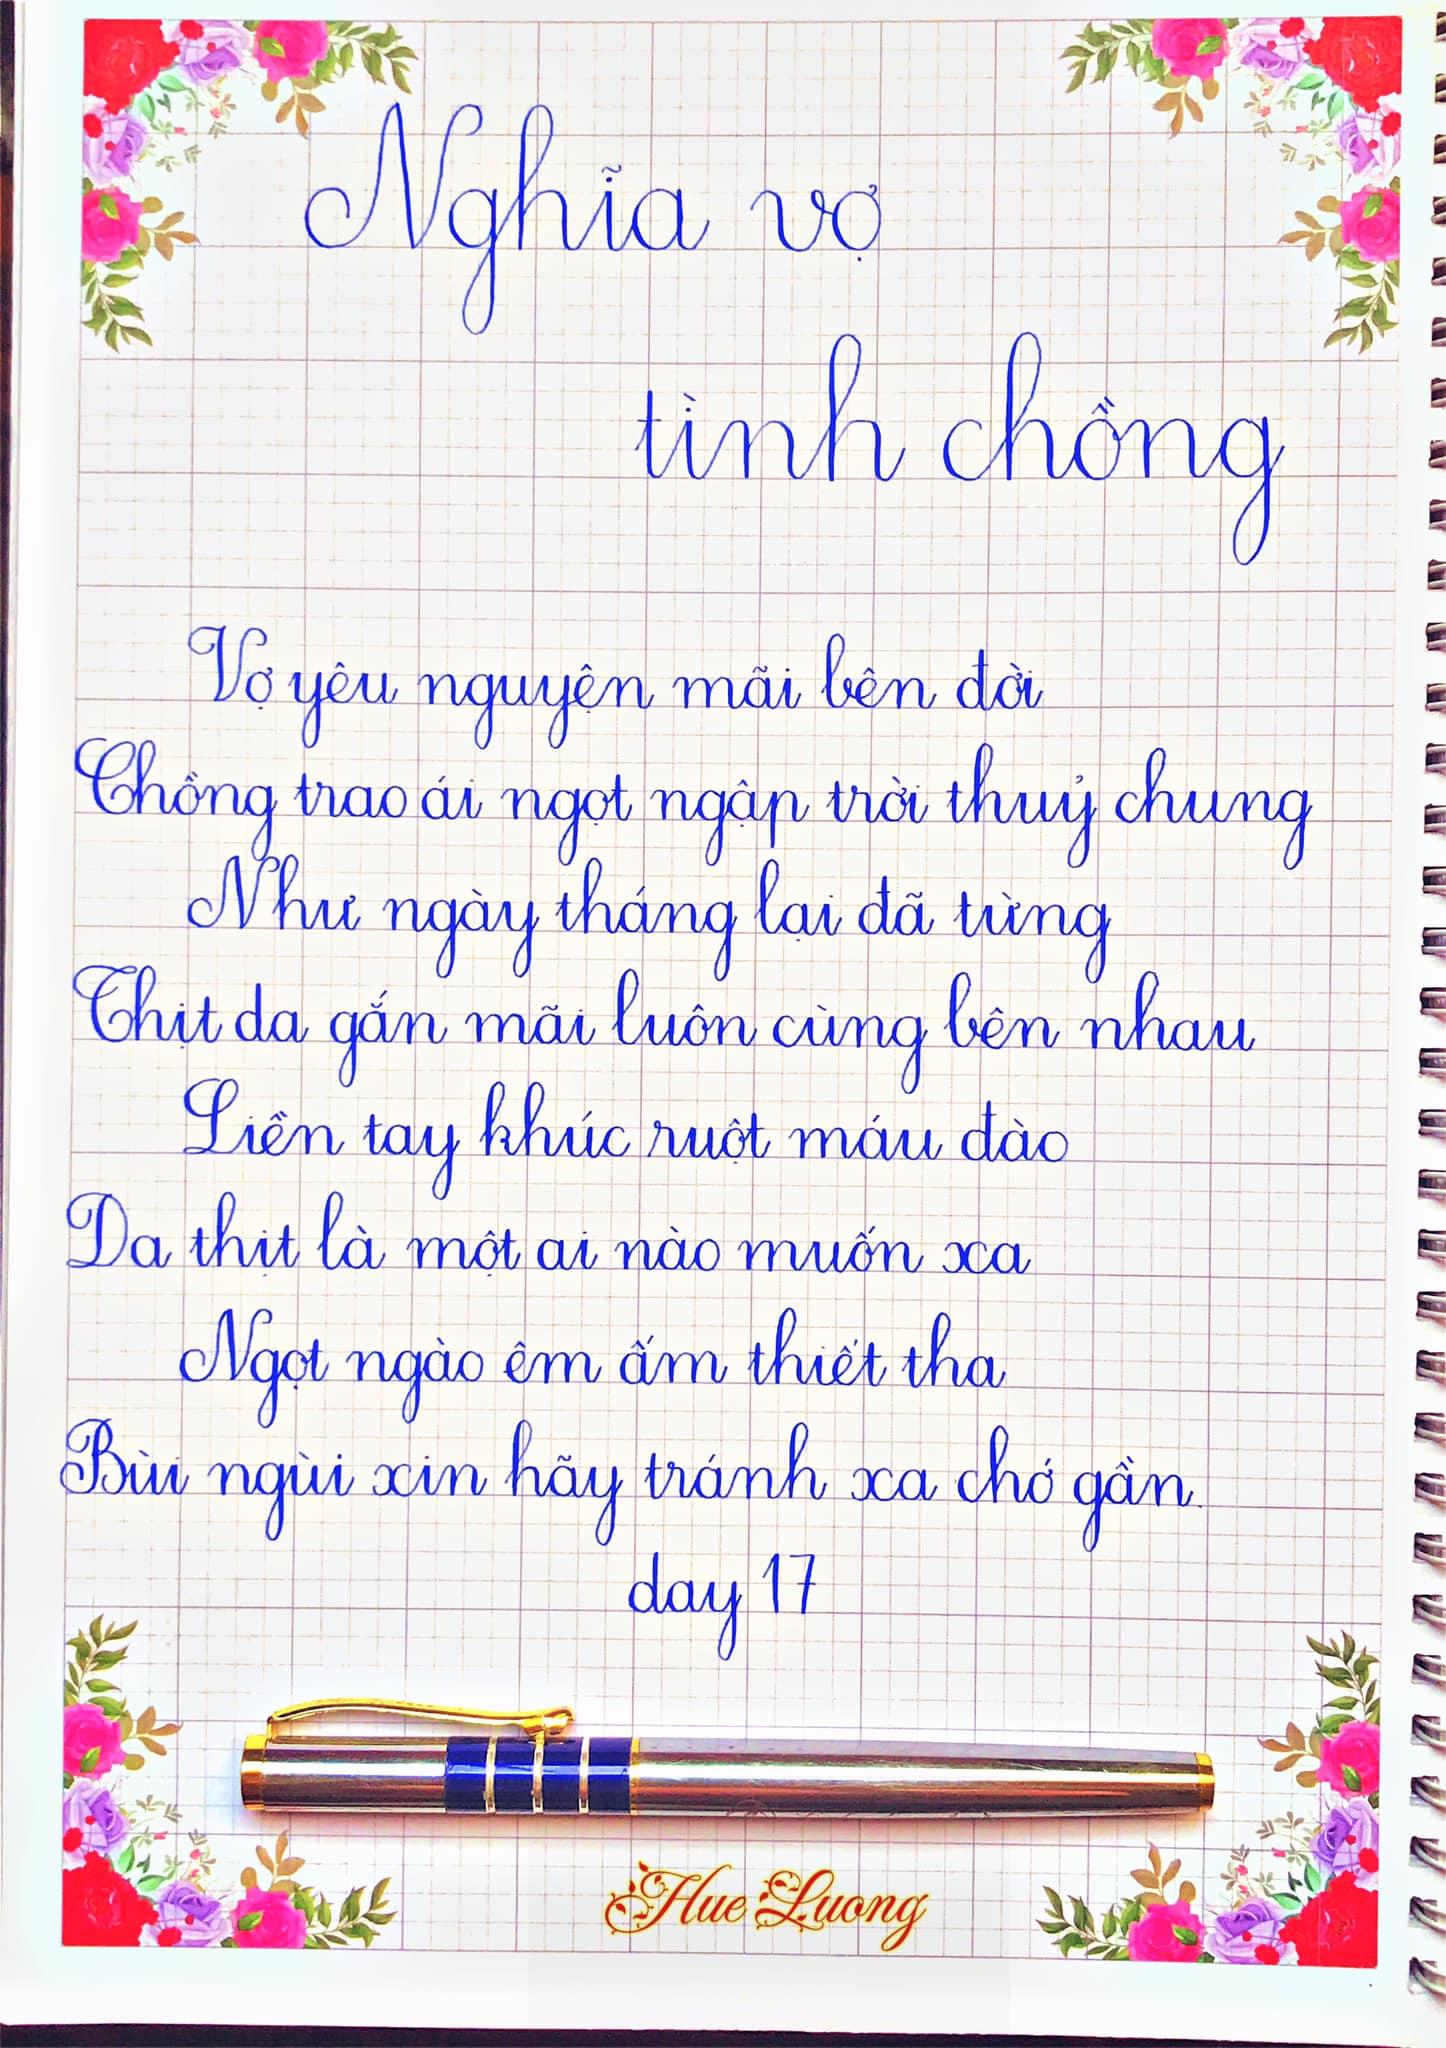 Nghĩa vợ
tình chồng
Vợ yêu nguyện mãi bên đời
Chồng trao ái ngọt ngập trời thuỷ chung
Như ngày tháng lại đã từng
Thịt da gắn mãi luôn cùng bên nhau
Liền tay khúc ruột máu đào
Da thịt là một ai nào muốn xa
Ngọt ngào êm ấm thiết tha
Bùi ngùi xin hãy tránh xa chớ gần.
day 17
Hue Luong